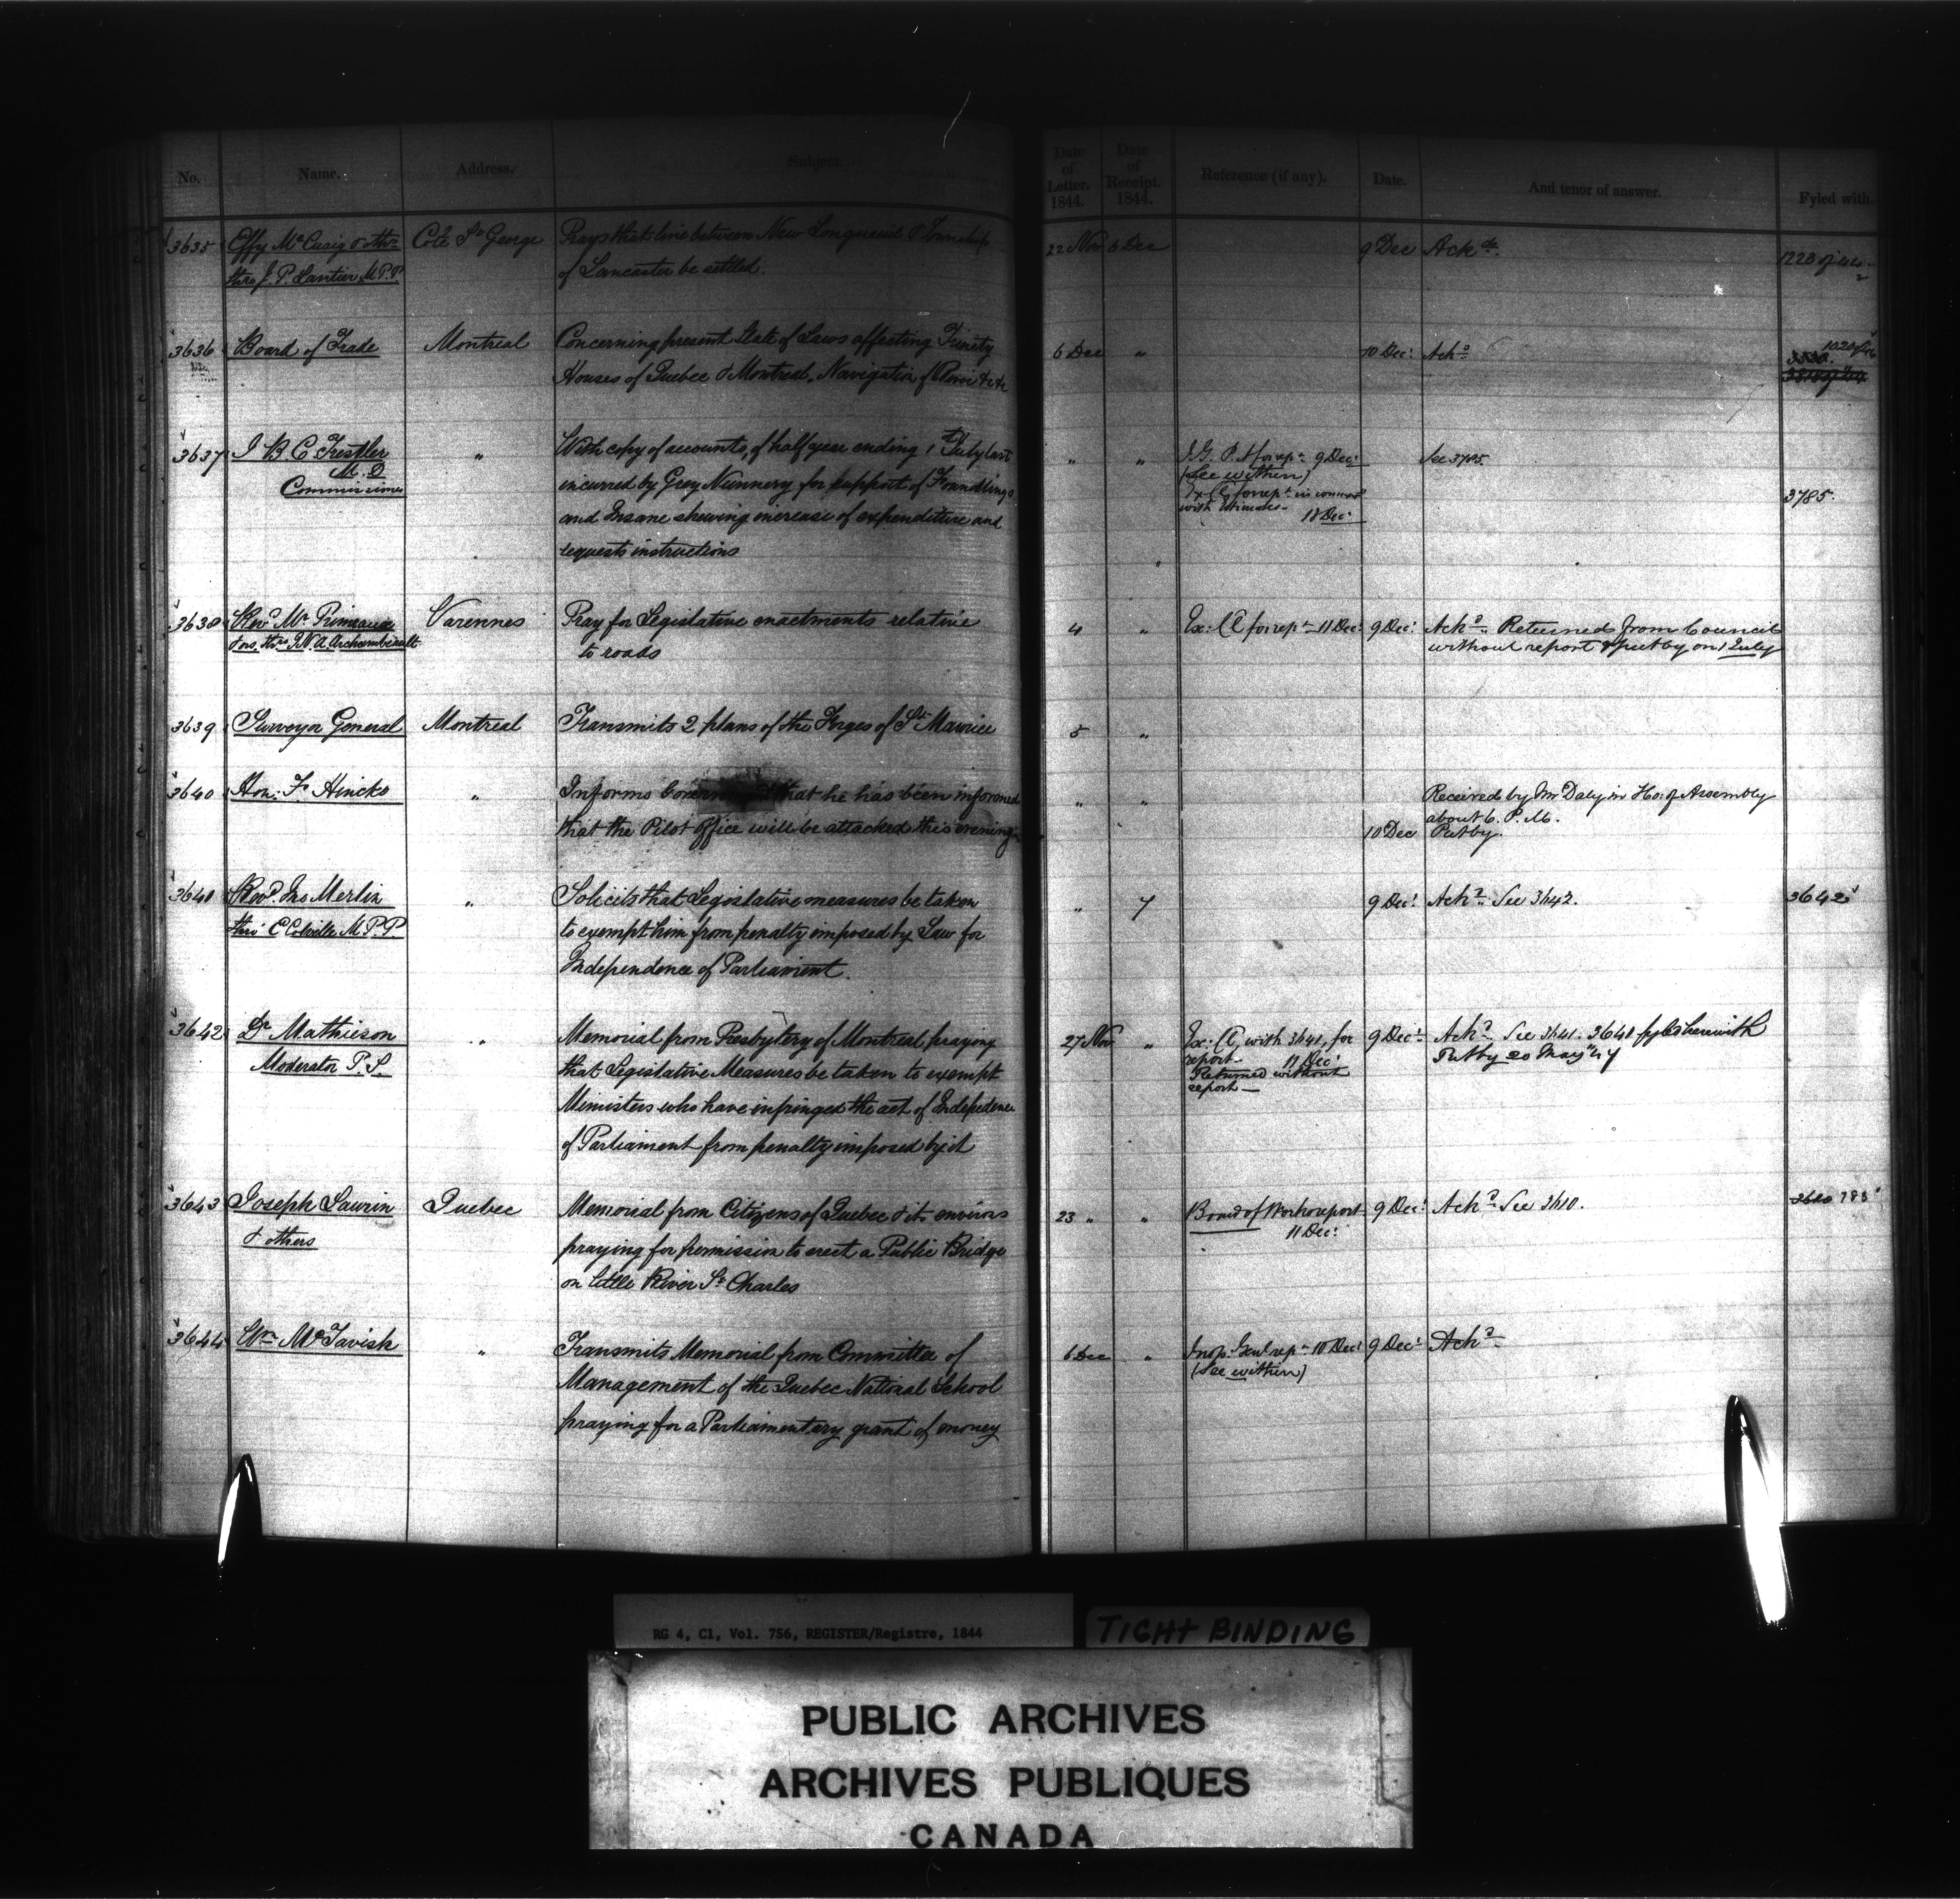 No. Name. Address. Subject. Date of Letter. 1844. Date of Receipt. 1844. Reference (if any). Date. And tenor of answer. Fyled with.
3635 Effy McCuaig & othrs Cote St George Prays that line between New Longueuil & Township 22 Nov 6 Dec 9 Dec Ackd.
thro J. P. Lantier M.P.P of Lancaster be settled. 1223 of
3636 Board of Trade Montreal Concerning present State of Laws affecting Trinity 6 Dec " 10 Dec: Ackd
Houses of Quebec & Montreal, Navigation of River &c &c
3637 J B C Trestler " With copy of accounts, of half year ending 1st July last " " I.G. P.A for rept 9 Dec: See 3785.
M. D incurred by Grey Nunnery for support of Foundlings (See within)
Commissioner and Insane shewing increase of expenditure and Ex: C. for rept in connexn with Estimates 18 Dec: 3785.
requests instructions
3638 Revd Mr Primeaux Varennes Pray for Legislative enactments relative 4 " Ex: C. for rept 11 Dec: 9 Dec: Ackd. Returned from Council
& ors. thro J.N.A. Archambeault to roads without report & put by on 1 July
3639 Surveyor General Montreal Transmits 2 plans of the Forges of St Maurice 5 "
3640 Hon: Fs Hincks " Informs that he has been informed " " Received by Mr Daly in Ho: of Assembly
about 6. P. M.
that the Pilot office will be attacked this evening 10 Dec Put by.
3641 Revd. Jno Merlin " Solicits that Legislative measures be taken " 7 9 Dec: Ackd See 3642. 3642
thro' E Colville M.P.P to exempt him from penalty imposed by Law for
Independence of Parliament.
3642 Dr Mathieson " Memorial from Presbytery of Montreal, praying 27 Nov " Ex: C, with 3641, for 9 Dec: Ackd See 3641. 3641 fyled herewith
Moderator P. S. that Legislative Measures be taken to exempt report 11 Dec: Put by 20 May
Returned without
Ministers who have infringed the act of Indepedence report
of Parliament from penalty imposed by it
3643 Joseph Laurin Quebec Memorial from Citizens of Quebec & its environs 23 " " Board of Works report 9 Dec: Ackd See 3610.
& others praying for permission to erect a Public Bridge 11 Dec:
on little River St Charles
3644 Wm McTavish " Transmits Memorial from Committee of 6 Dec " Insp: Genl rept 10 Dec: 9 Dec: Ackd
(See within)
Management of the Quebec National School
praying for a Parliamentary grant of money
RG 4, C1, Vol. 756, REGISTER/Registre, 1844
TIGHT BINDING
PUBLIC ARCHIVES
ARCHIVES PUBLIQUES
CANADA